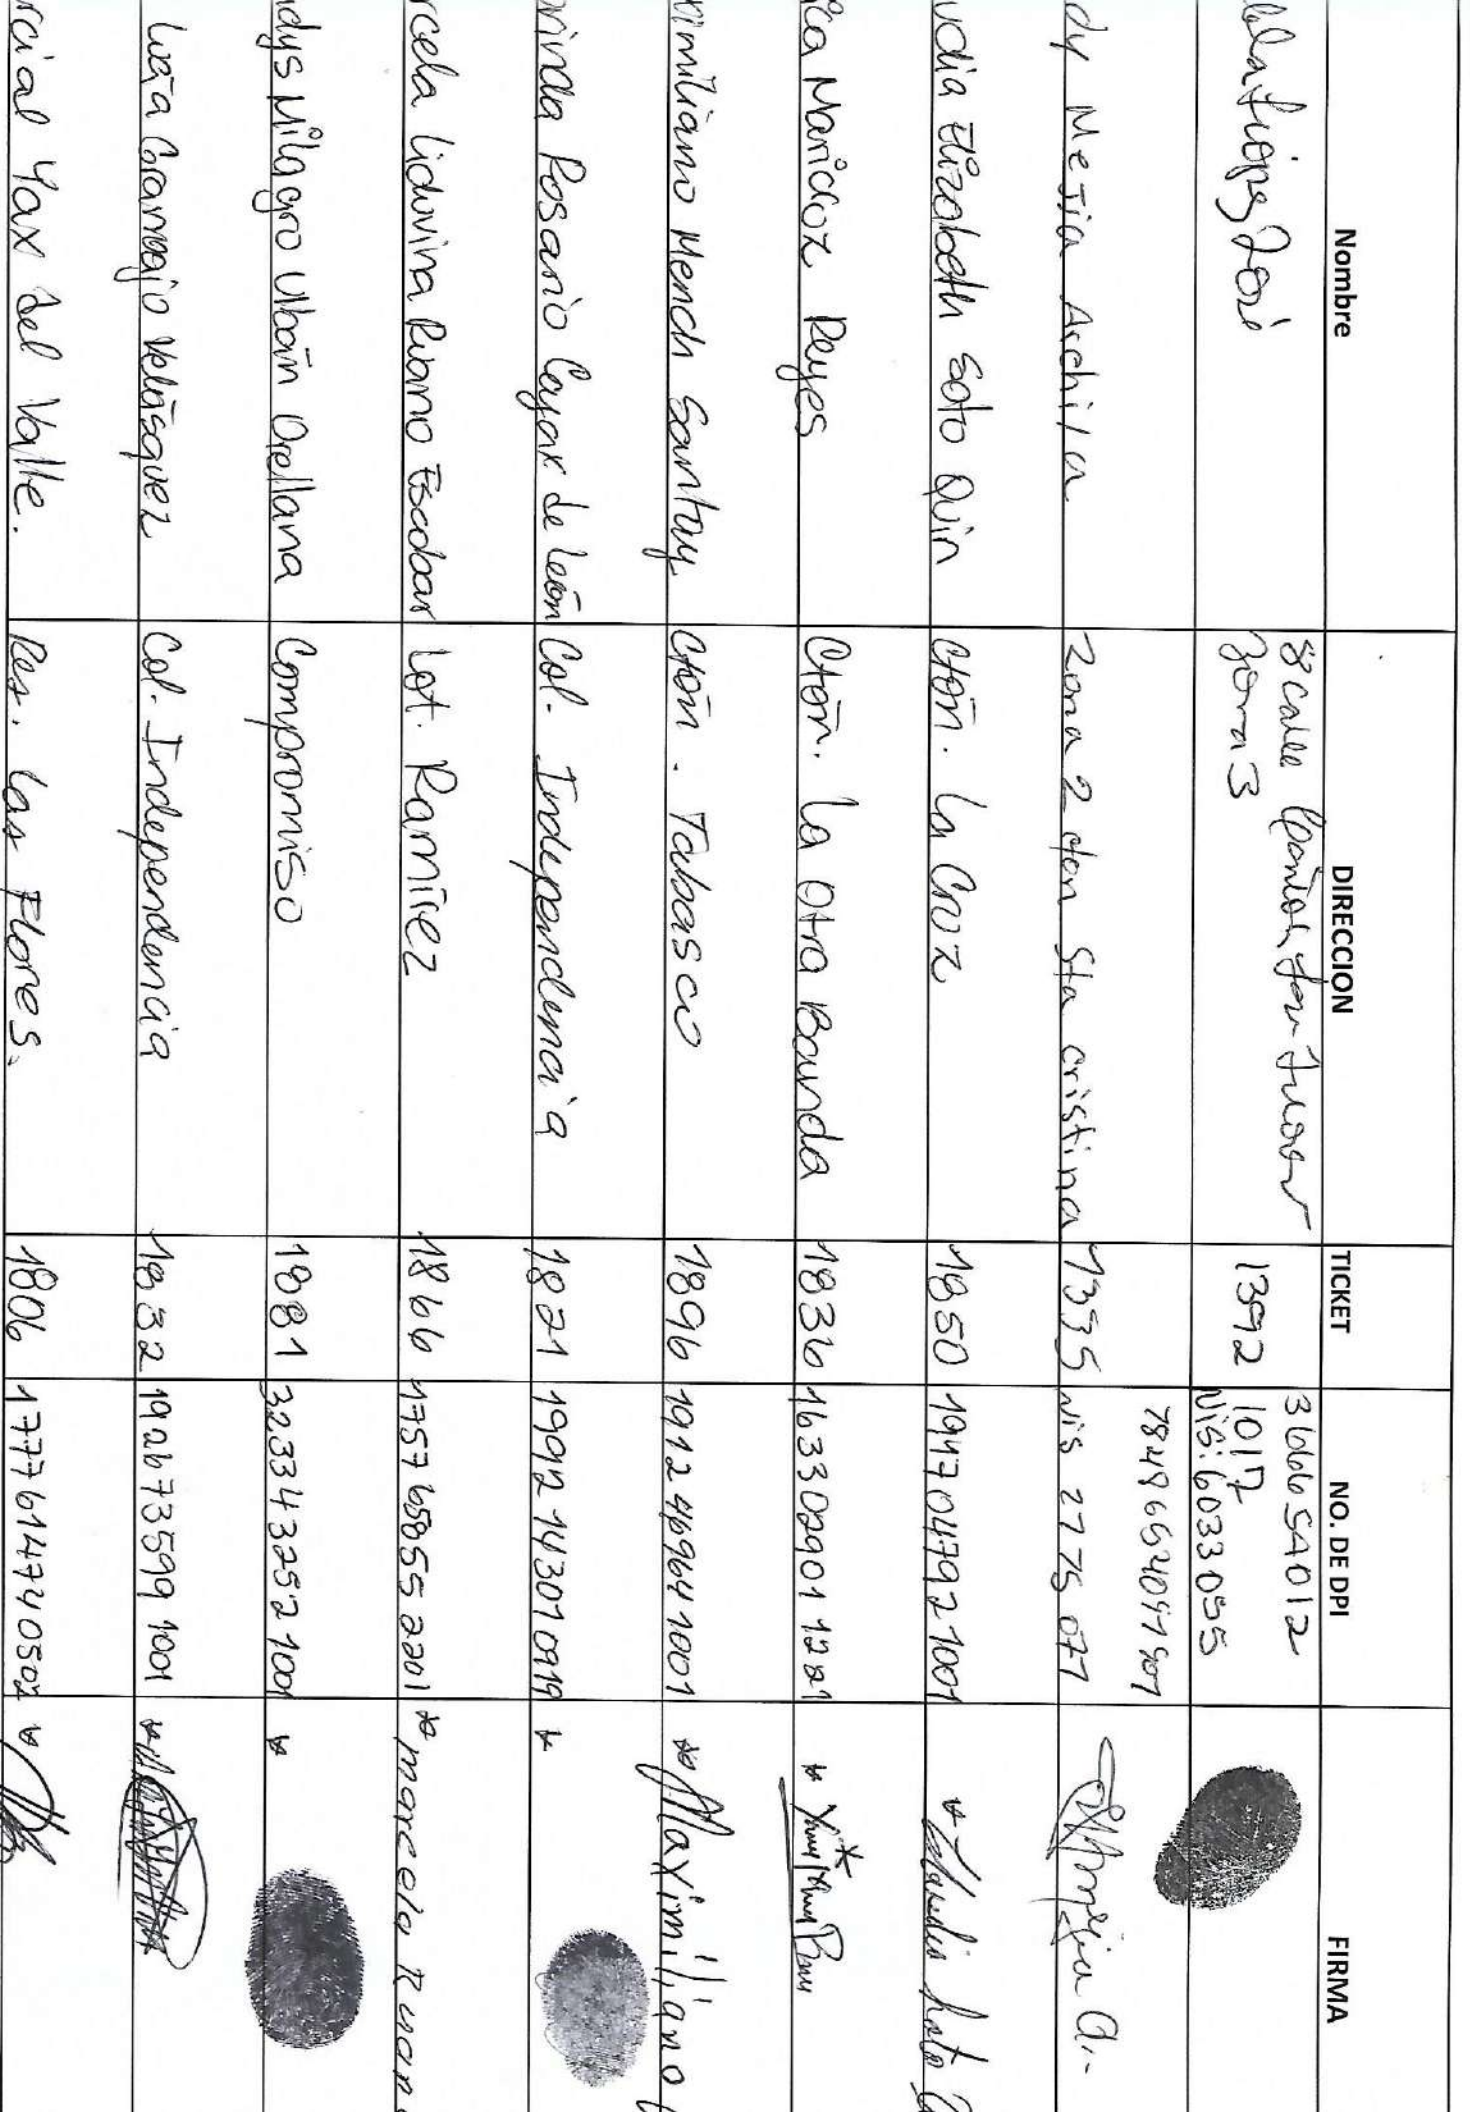 Nombre DIRECCION TICKET NO. DE DPI FIRMA
López José 8 calle Cantón 1392 3666 54012
zona 3 1017
NiS: 6033055
dy Mejia Archila Zona 2 cton Sta cristina 1335 Nis 2775077
udia Elizabeth Soto Quin Ctón. La Cruz 1850 1947047921001
ica Maricruz Reyes Ctón. La Otra Banda 1836 1633029011221
ximiliano Mench Santay Ctón. Tabasco 1896 1912469641001 * Maximiliano
orinda Rosario Cayax de León Col. Independencia 1821 1992143010919 *
rcela Lidovina Ruano Escobar Lot. Ramírez 1866 1757658552201 * marcela Ruan
dys Milagro Urbán Orellana Compromiso 1881 3233432521001 *
Gramajo Velásquez Col. Independencia 1832 1926735991001 *
rcial Yax del Valle. Res. Las Flores. 1806 *